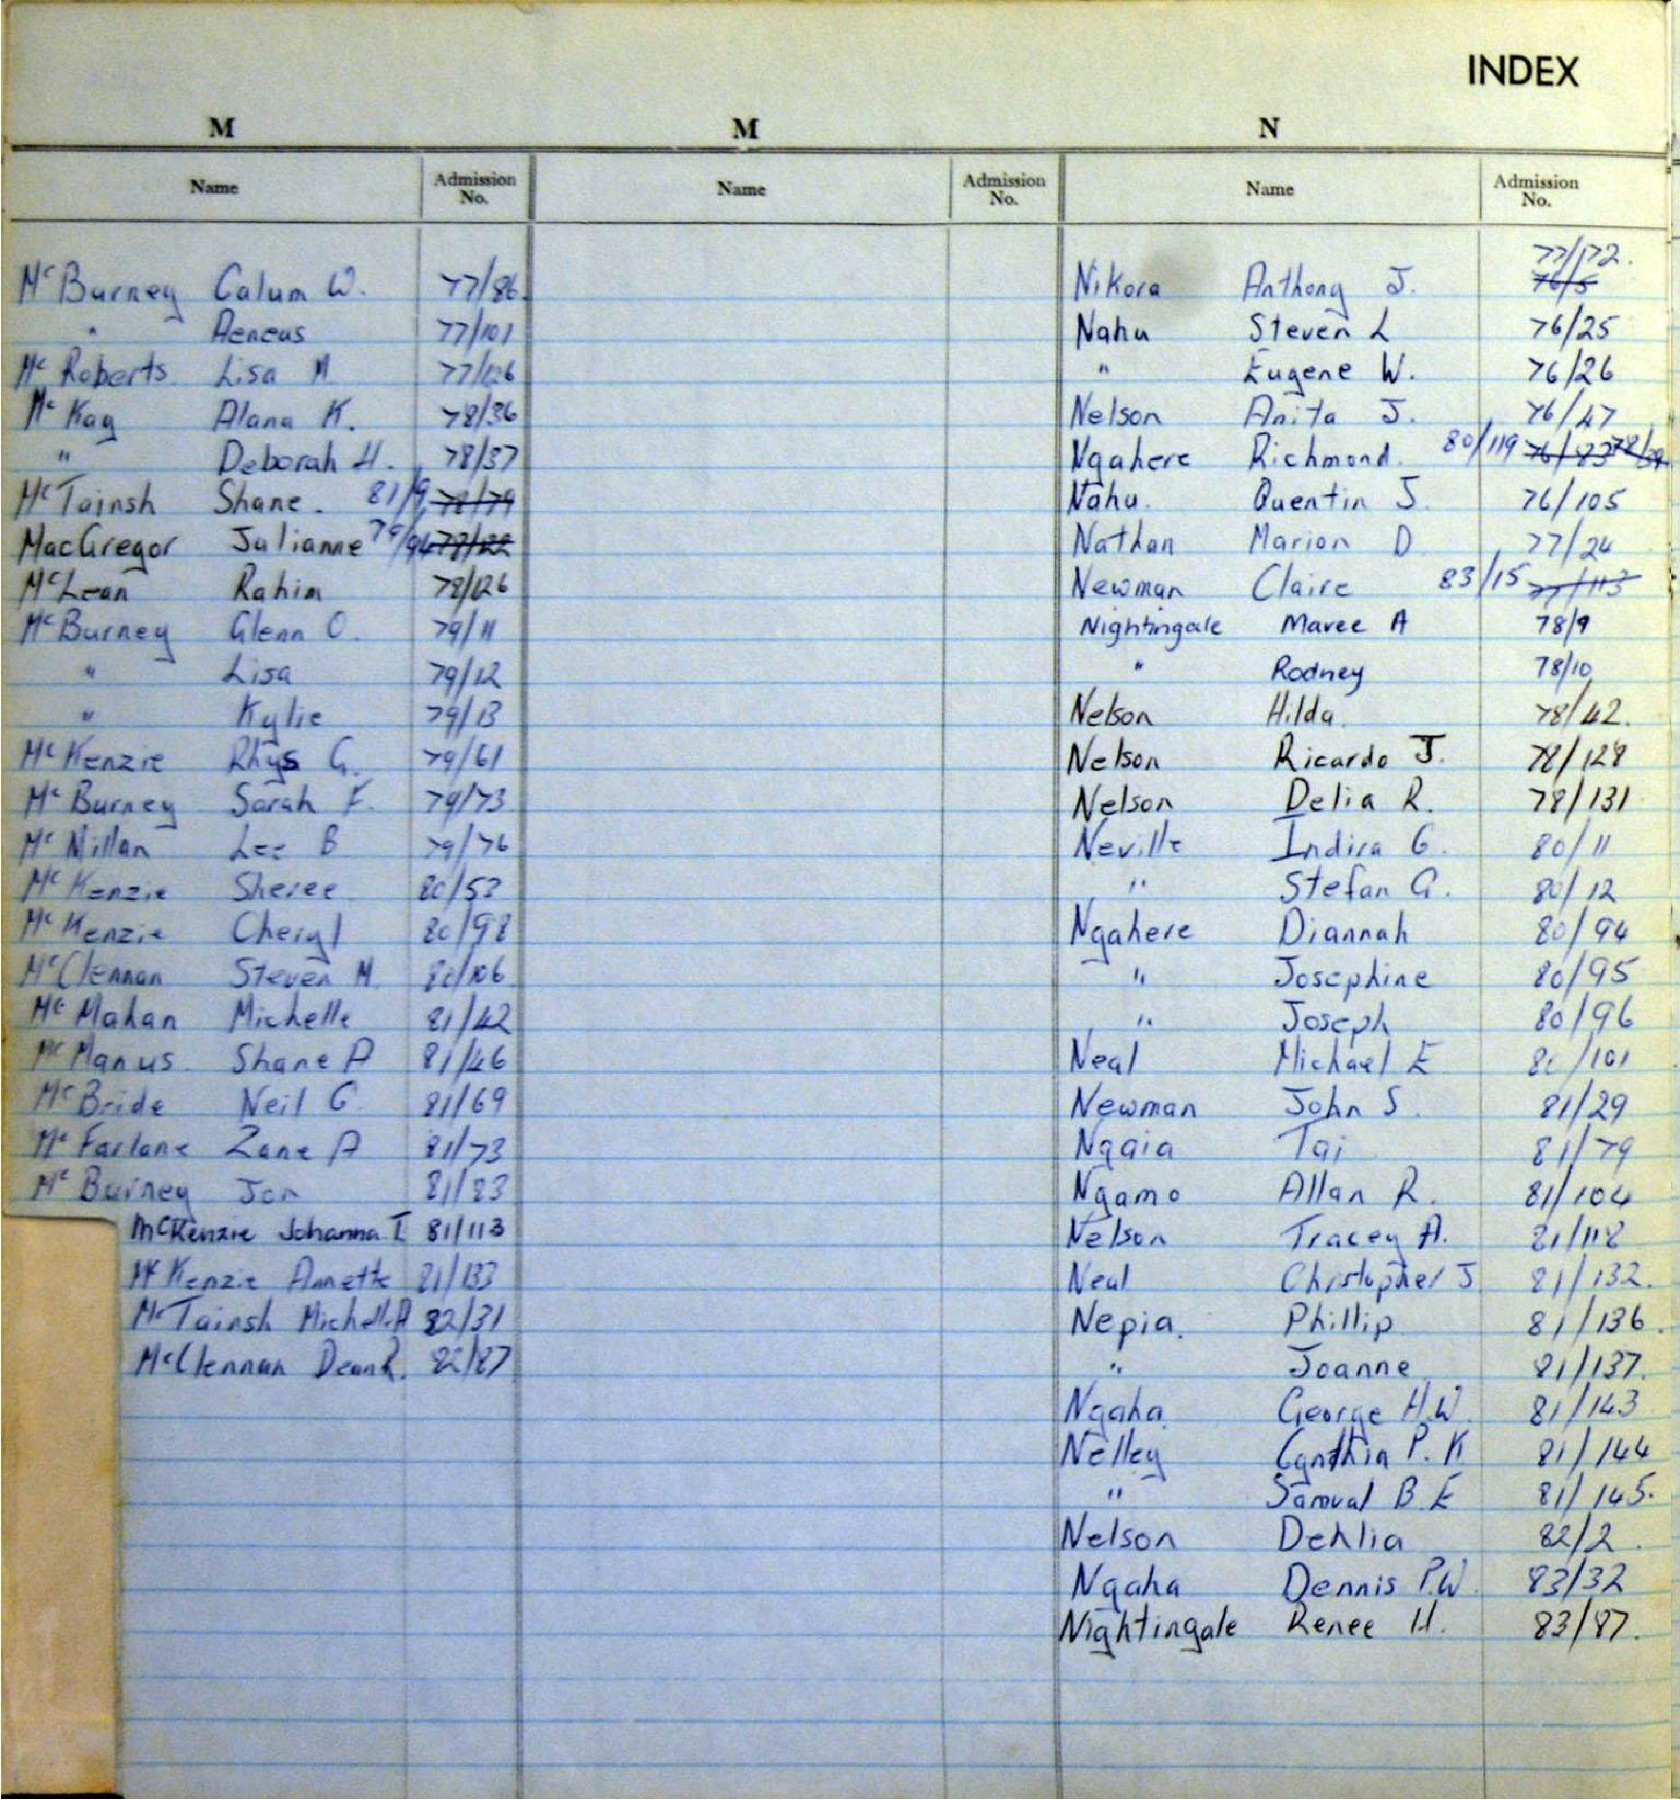 INDEX
M
Name Admission No.
McBurney Calum W. 77/86
" Aeneas 77/101
McRoberts Lisa M 77/126
McKay Alana K. 78/36
" Deborah H. 78/37
McTainsh Shane. 81/9 78/79
MacGregor Julianne 79/94 78/122
McLean Rahim 78/126
McBurney Glenn O. 79/11
" Lisa 79/12
" Kylie 79/13
McKenzie Rhys G. 79/61
McBurney Sarah F. 79/73
McMillan Lee B 79/76
McKenzie Sheree 80/53
McKenzie Cheryl 80/98
McClennan Steven M. 80/106
McMahan Michelle 81/42
McManus Shane A 81/46
McBride Neil G. 81/69
McFarlane Zane A 81/73
McBurney Jon 81/83
McKenzie Johanna I 81/113
McKenzie Annette 81/133
McTainsh Michelle A 82/31
McClennan Dean R. 82/87
M
Name Admission No.
N
Name Admission No.
77/172.
Nikora Anthony J. 76/5
Nahu Steven L 76/25
" Eugene W. 76/26
Nelson Anita J. 76/47
Ngahere Richmond. 80/119 76/83 78/39
Nahu. Quentin J. 76/105
Nathan Marion D 77/24
Newman Claire 83/15 77/113
Nightingale Maree A 78/9
" Rodney 78/10
Nelson Hilda. 78/42.
Nelson Ricardo J. 78/128
Nelson Delia R. 78/131
Neville Indira G. 80/11
" Stefan G. 80/12
Ngahere Diannah 80/94
" Josephine 80/95
" Joseph 80/96
Neal Michael E 80/101
Newman John S. 81/29
Ngaia Tai 81/79
Ngamo Allan R. 81/104
Nelson Tracey A. 81/118
Neal Chrstopher J 81/132.
Nepia. Phillip 81/136.
" Joanne 81/137.
Ngaha George H.W. 81/143
Nelley Cynthia P. K 81/144
" Samual B.E 81/145.
Nelson Dehlia 82/2.
Ngaha Dennis P.W. 83/32
Nightingale Renee H. 83/87.